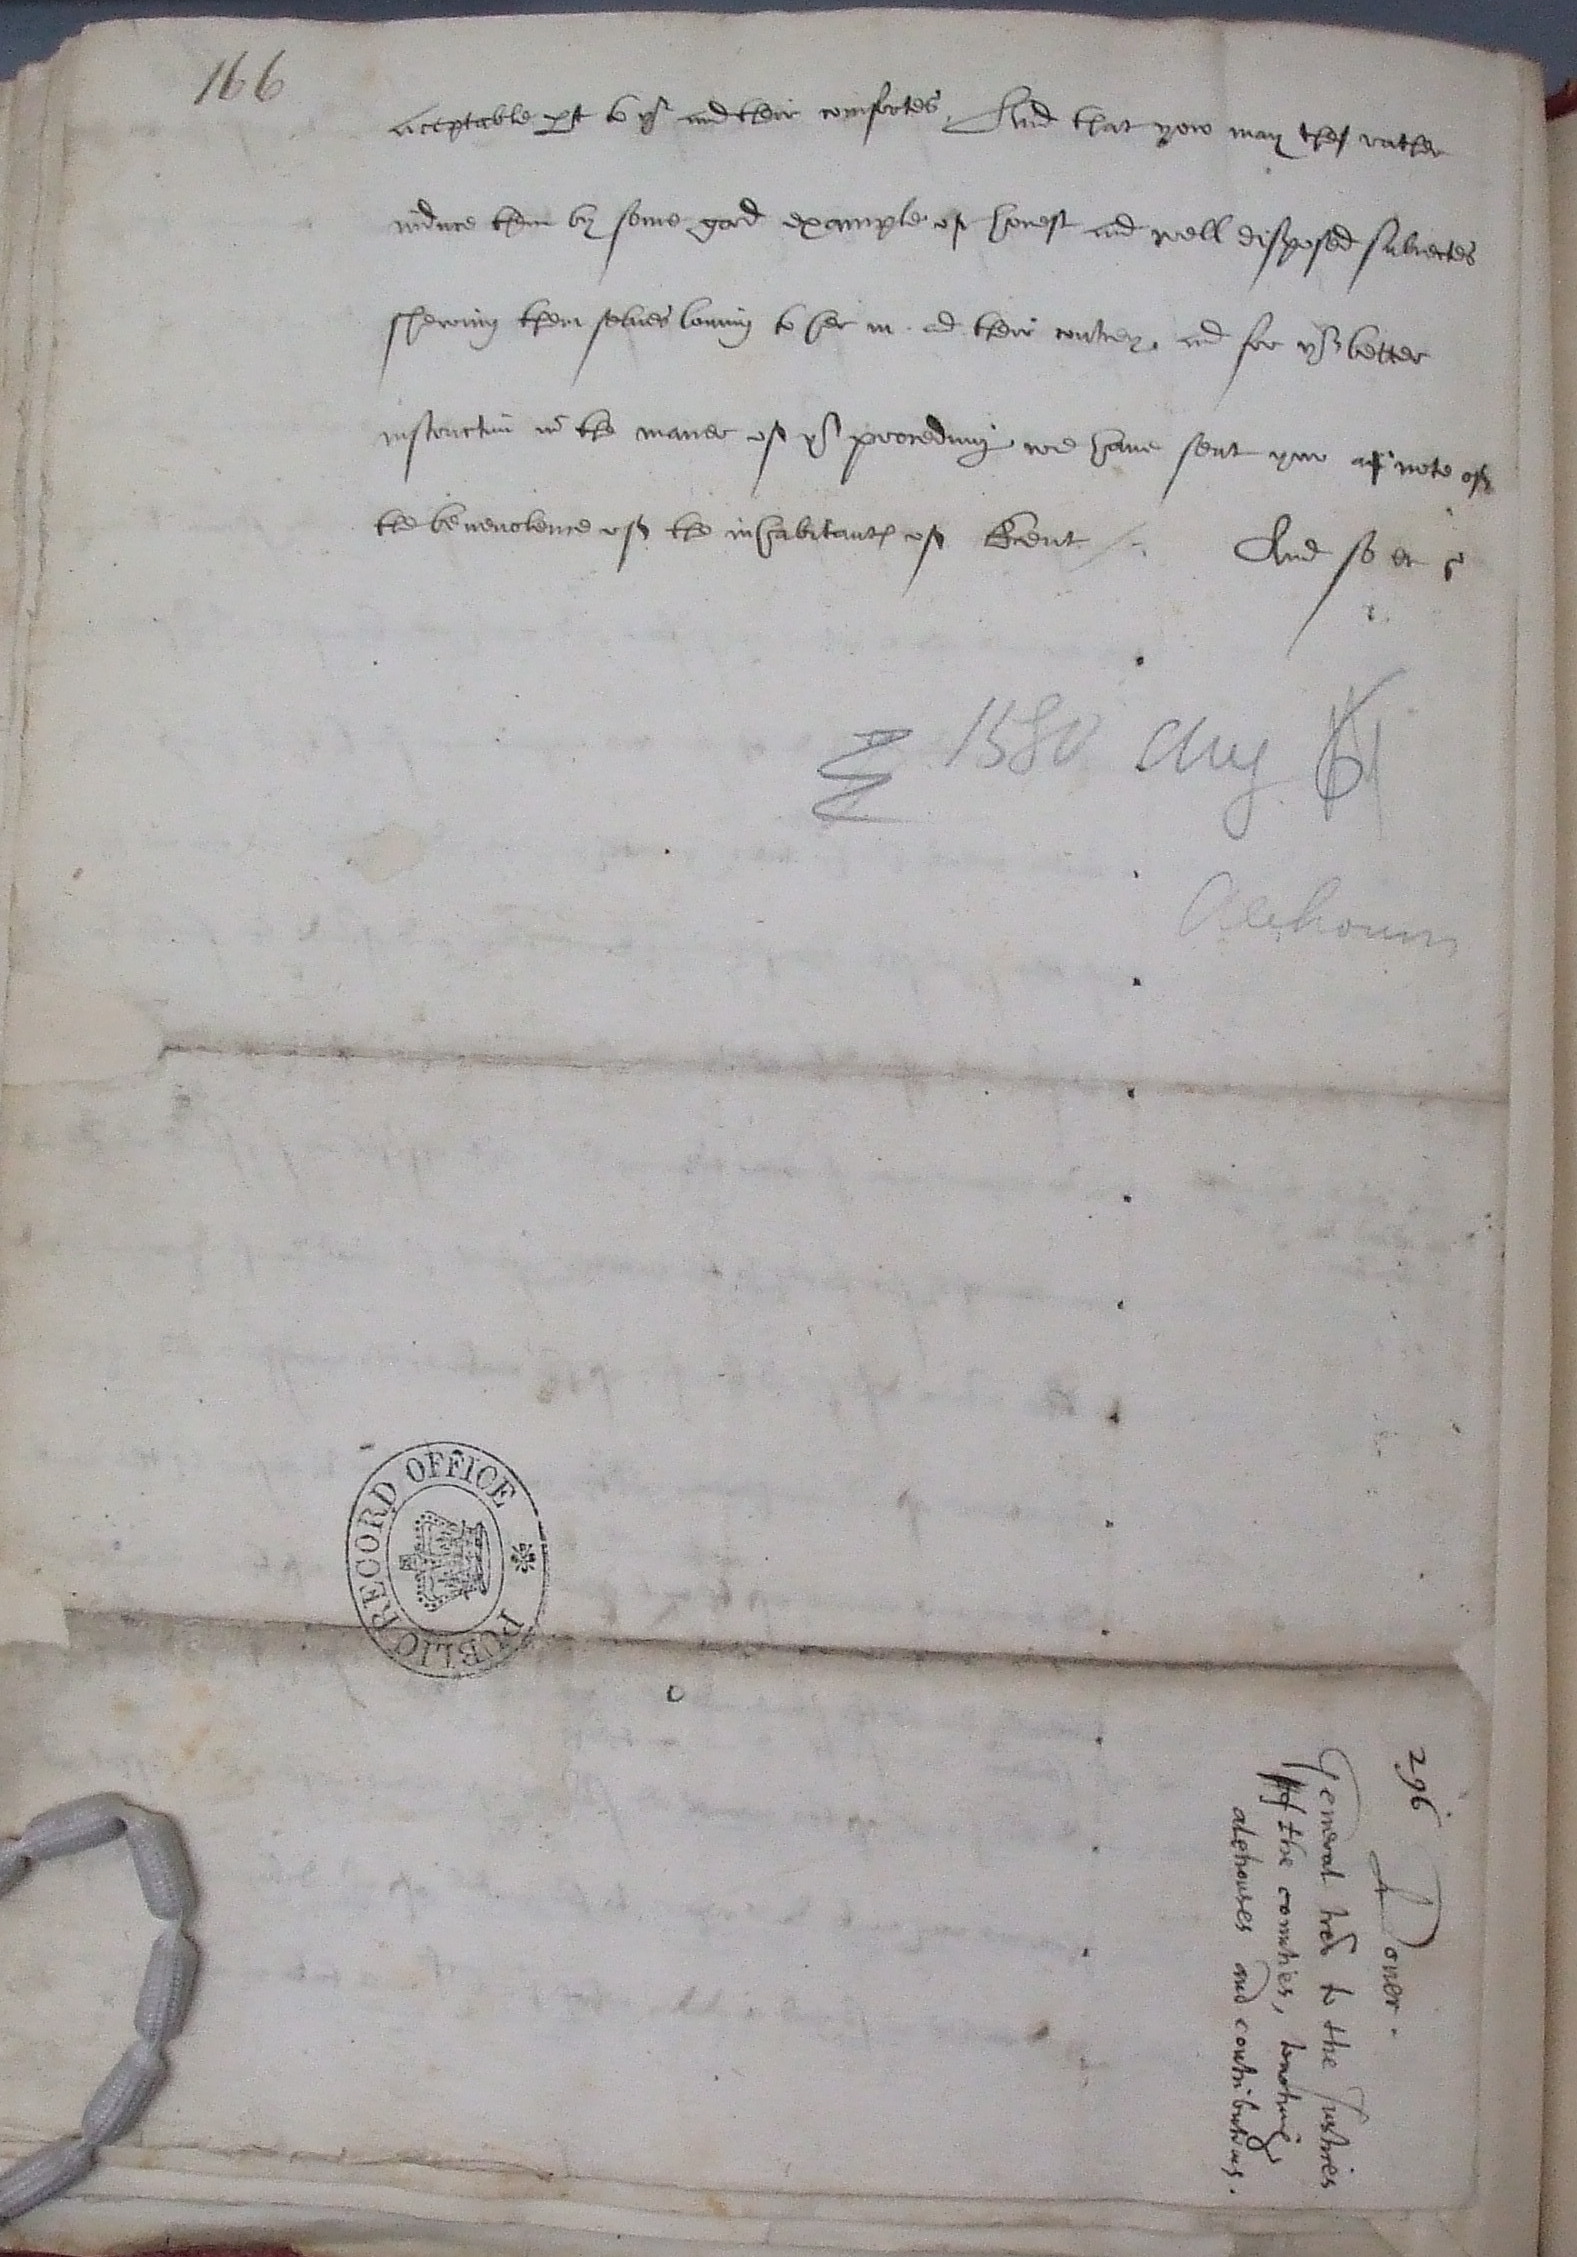 166
acceptable to yor and their comfortes, And that yow may the rather
induce them by some good example of honest and well disposed subiectes
shewing them selues louing to her m. ad their contrey. and for yor better
instruction in the maner of yor proceeding we haue sent yow a note of
the beneuolence of the inhabitantes of Kent And so et c
1580 Aug
Alehouses
PUBLIC RECORD OFFICE
296
Dover.
General lres to the Justices
of the counties, touching
alehouses and contributions.